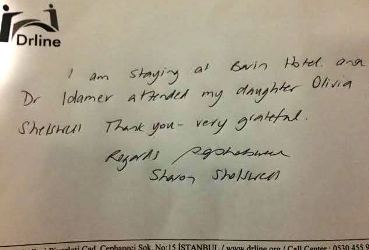 Drline
I am staying at Barin Hotel and
Dr Idamer attended my daughter Olivia
Shelswell Thank you - very grateful.
Regards
Sharon Shelswell
Cad. Cephangci Sok. No:15 İSTANBUL / www.drline.org / Call Center : 0530 458 9